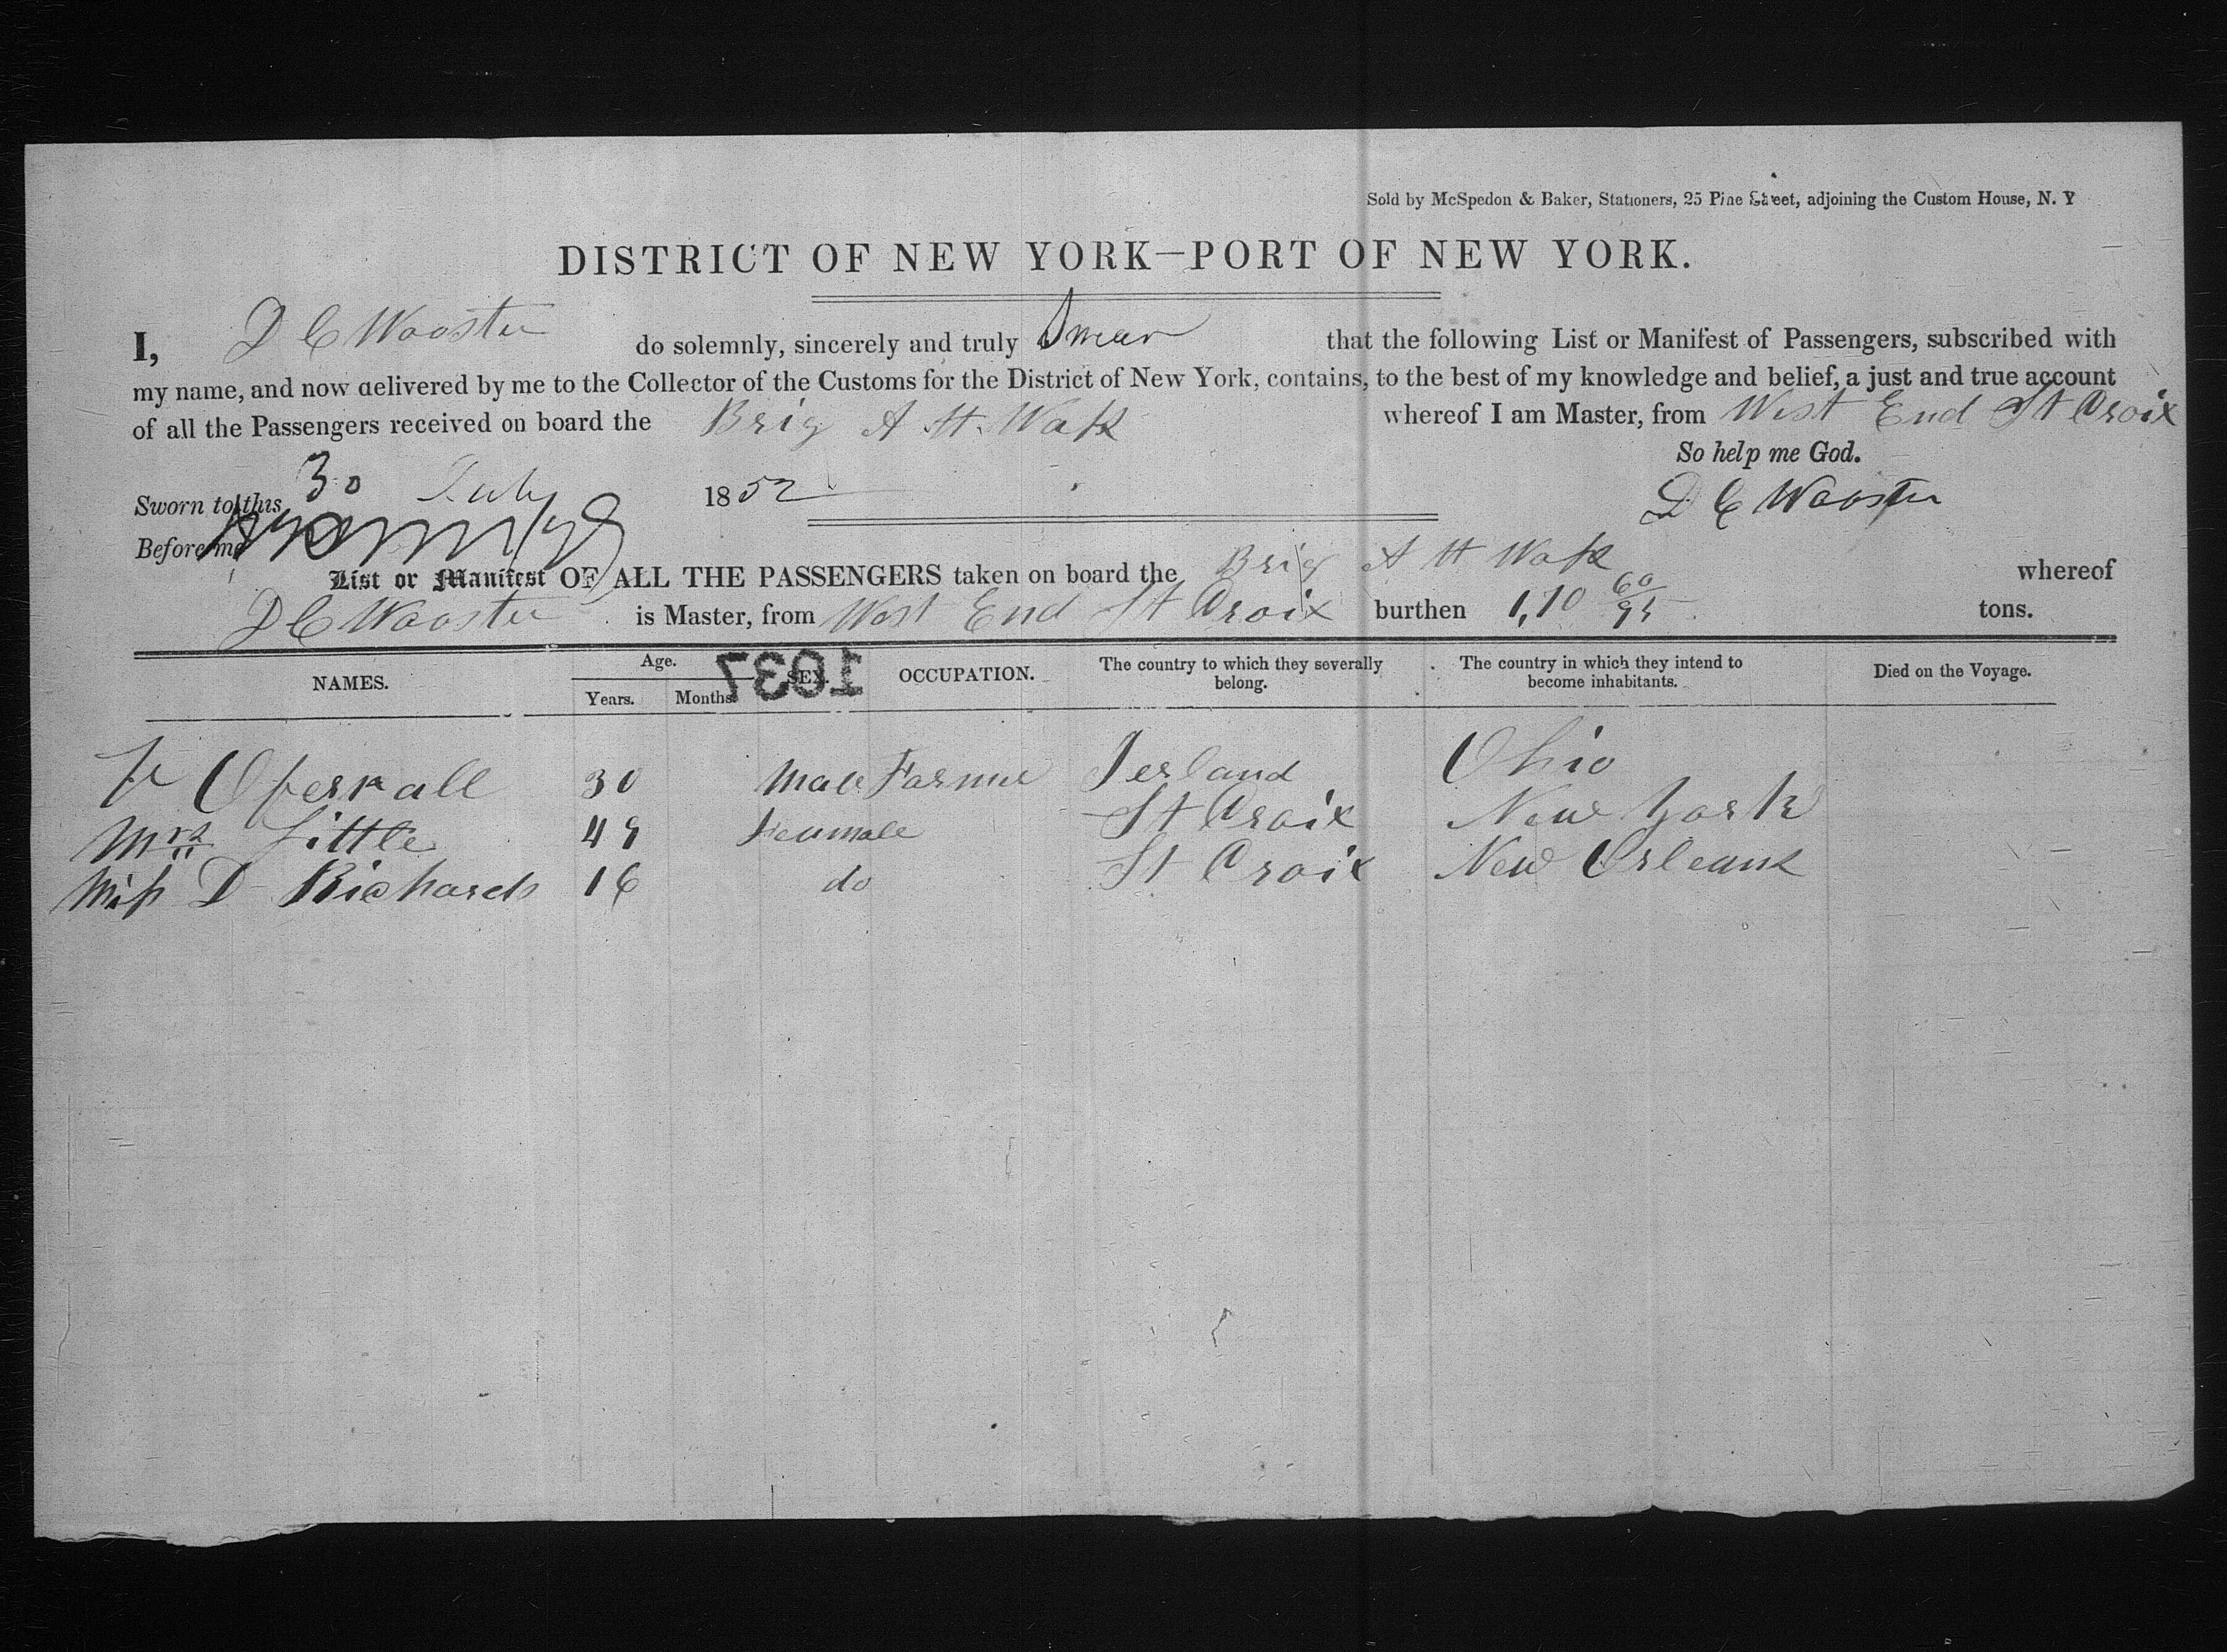 Sold by McSpedon & Baker, Stationers, 25 Pine Street, adjoining the Custom House, N. Y
DISTRICT OF NEW YORK—PORT OF NEW YORK.
I, D C Wooster do solemnly, sincerely and truly Swear that the following List or Manifest of Passengers, subscribed with
my name, and now delivered by me to the Collector of the Customs for the District of New York, contains, to the best of my knowledge and belief, a just and true account
of all the Passengers received on board the Brig A H whereof I am Master, from West End St Croix
So help me God.
Sworn to this 30 July 1852
D C Wooster
Before me
List or Manifest OF ALL THE PASSENGERS taken on board the Brig A H whereof
D C Wooster is Master, from West End St Croix burthen tons.
NAMES. Age. Years. Months. SEX. OCCUPATION. The country to which they severally belong. The country in which they intend to become inhabitants. Died on the Voyage.
1037
Oferrall 30 Male Farmer Ierland Ohio
Mrs Little 49 Feamale St Croix New York
Miss D Richards 16 do St Croix New Orleans